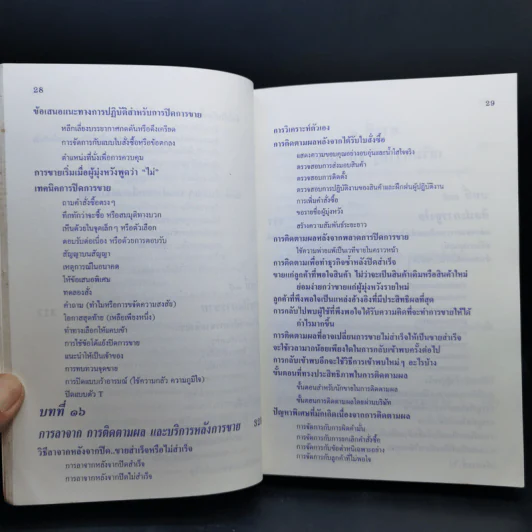 28
ข้อเสนอแนะทางการปฏิบัติสำหรับการปิดการขาย
หลีกเลี่ยงบรรยากาศกดดันหรือตึงเครียด
การจัดการกับแบบใบสั่งซื้อหรือข้อตกลง
ตำแหน่งที่นั่งเพื่อการควบคุม
การขายเริ่มเมื่อผู้มุ่งหวังพูดว่า "ไม่"
เทคนิคการปิดการขาย
ถามคำสั่งซื้อตรงๆ
ทึกทักว่าจะซื้อ หรือสมมุติทางบวก
เห็นด้วยในจุดเล็กๆ หรือตัวเลือก
ตอบรับต่อเนื่อง หรือด้วยการตอบรับ
สัญญาบนสัญญา
เหตุการณ์ในอนาคต
ให้ข้อเสนอพิเศษ
ทดลองสั่ง
คำถาม (ทำไมหรือการขจัดความสงสัย)
โอกาสสุดท้าย (เหลือเพียงหนึ่ง)
ท่าทางเลือกให้แคบเข้า
การใช้ข้อโต้แย้งปิดการขาย
แนะนำให้เป็นเจ้าของ
การทบทวนจุดขาย
การปิดแบบเร้าอารมณ์ (ใช้ความกลัว ความภูมิใจ)
ปิดแบบตัว T
บทที่ ๑๖
การลาจาก การติดตามผล และบริการหลังการขาย
วิธีลาจากหลังจากปิด..ขายสำเร็จหรือไม่สำเร็จ
การลาจากหลังจากปิดสำเร็จ
การลาจากหลังจากปิดไม่สำเร็จ
29
การวิเคราะห์ตัวเอง
การติดตามผลหลังจากได้รับใบสั่งซื้อ
แสดงความขอบคุณอย่างอบอุ่นและน้ำใสใจจริง
ตรวจสอบการส่งมอบสินค้า
ตรวจสอบการติดตั้ง
ตรวจสอบการปฏิบัติงานของสินค้าและฝึกฝนผู้ปฏิบัติงาน
การเพิ่มคำสั่งซื้อ
ขอรายชื่อผู้มุ่งหวัง
สร้างความสัมพันธ์ระยะยาว
การติดตามผลหลังจากพลาดการปิดการขาย
ใช้ความพ่ายแพ้เป็นเวทีขายในคราวหน้า
การติดตามเพื่อทำธุรกิจซ้ำหลังปิดสำเร็จ
ขายแก่ลูกค้าที่พอใจสินค้า ไม่ว่าจะเป็นสินค้าเดิมหรือสินค้าใหม่
ย่อมง่ายกว่าขายแก่ผู้มุ่งหวังรายใหม่
ลูกค้าที่พึงพอใจเป็นแหล่งอ้างอิงที่มีประสิทธิผลที่สุด
การกลับไปพบผู้ใช้ที่พึงพอใจได้รับความคิดที่จะทำการขายให้ได้
กำไรมากขึ้น
การติดตามผลที่อาจเปลี่ยนการขายไม่สำเร็จให้เป็นขายสำเร็จ
จะใช้เวลามากน้อยเพียงใดในการกลับเข้าพบครั้งต่อไป
การกลับเข้าพบอีกจะใช้วิธีการเข้าพบใหม่ๆ อะไรบ้าง
ขั้นตอนที่ทรงประสิทธิภาพในการติดตามผล
ขั้นตอนสำหรับนักขายในการติดตามผล
ขั้นตอนการติดตามผลโดยผ่านบริษัท
ปัญหาพิเศษที่มักเกิดเนื่องจากการติดตามผล
การจัดการกับการผิดคำมั่น
การจัดการกับการยกเลิกคำสั่งซื้อ
การจัดการกับข้อตำหนิเฉพาะอย่าง
การจัดการกับลูกค้าที่ไม่พอใจ